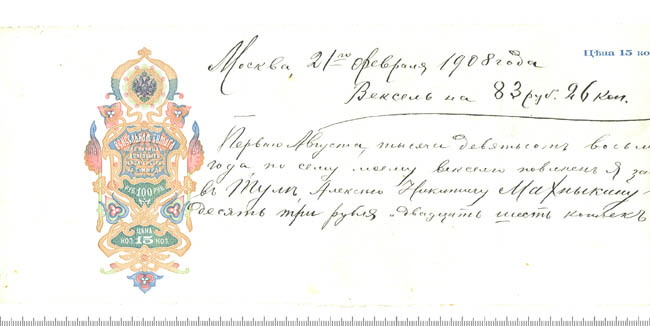 Цѣна 15 ко
Москва, 21го февраля 1908 года
Вексель на 83 руб. 26 коп.
Первого Августа, тысяча девятьсотъ восьм
года, по сему моему векселю повиненъ я за
въ Тулѣ Алексѣю Никитичу Махныкину
десятъ три рубля двадцать шесть копѣекъ
РУБ. 100 РУБ.
ЦѢНА
КОП. 15 КОП.